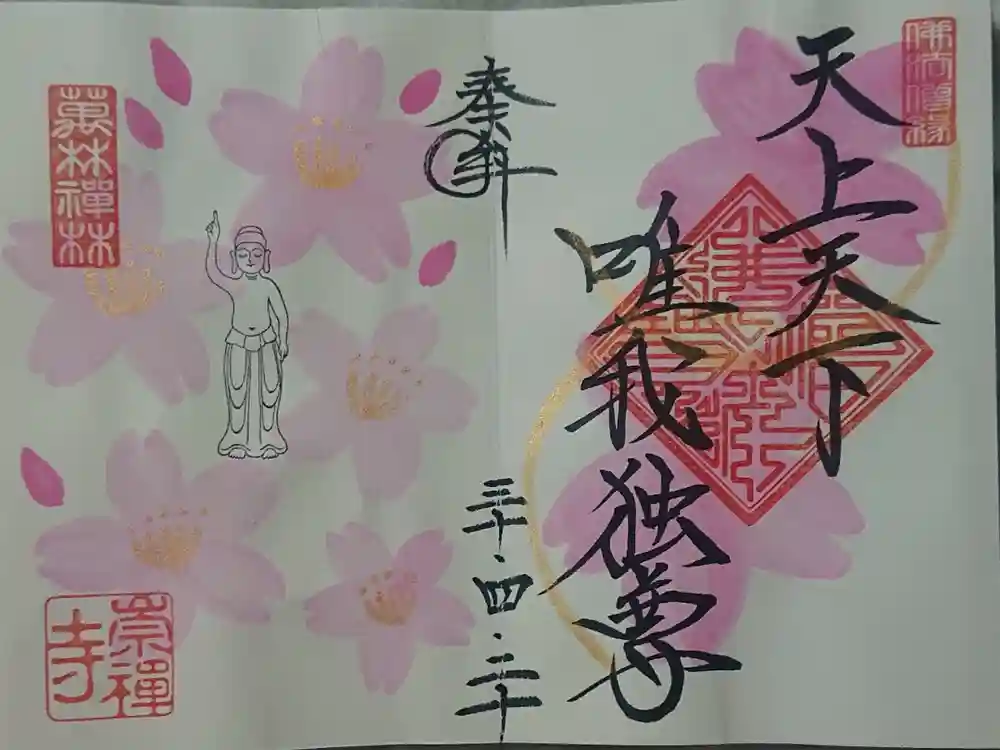 天上天下
唯我独尊
奉拝
三十・四・二十
萬林禪林
崇禅寺